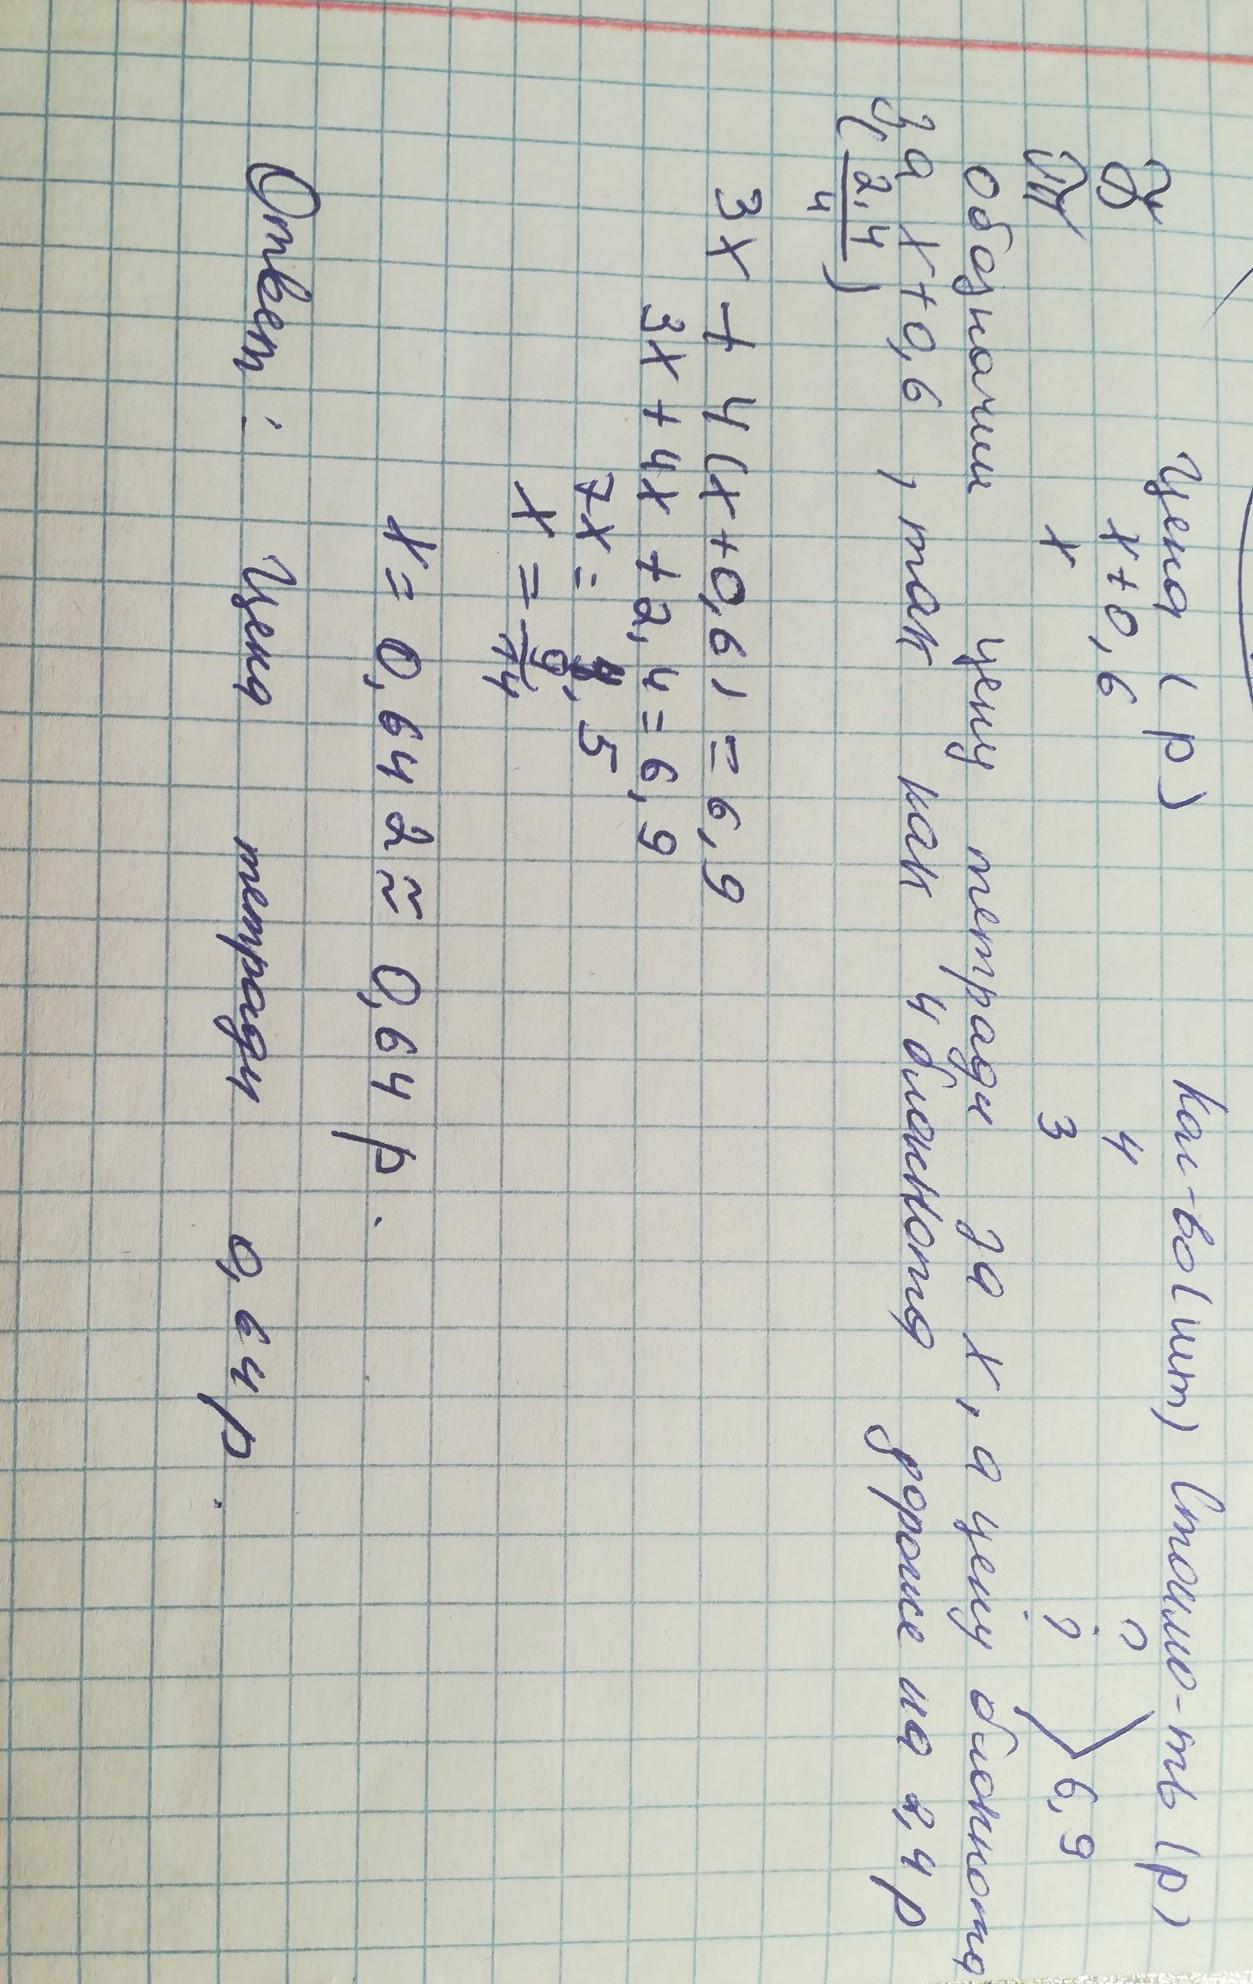 Цена (р) Кол-во (шт) Стоимо-ть (р)
Б x+0,6 4 ?
Т x 3 ? 6,9
Обозначим цену тетради за x, а цену блокнота
за x+0,6, так как 4 блокнота дороже на 2,4 р
(2,4/4)
3x + 4(x+0,6) = 6,9
3x + 4x + 2,4 = 6,9
7x = 4,5
x = 9/14
x = 0,642 ≈ 0,64 р.
Ответ: Цена тетради 0,64 р.